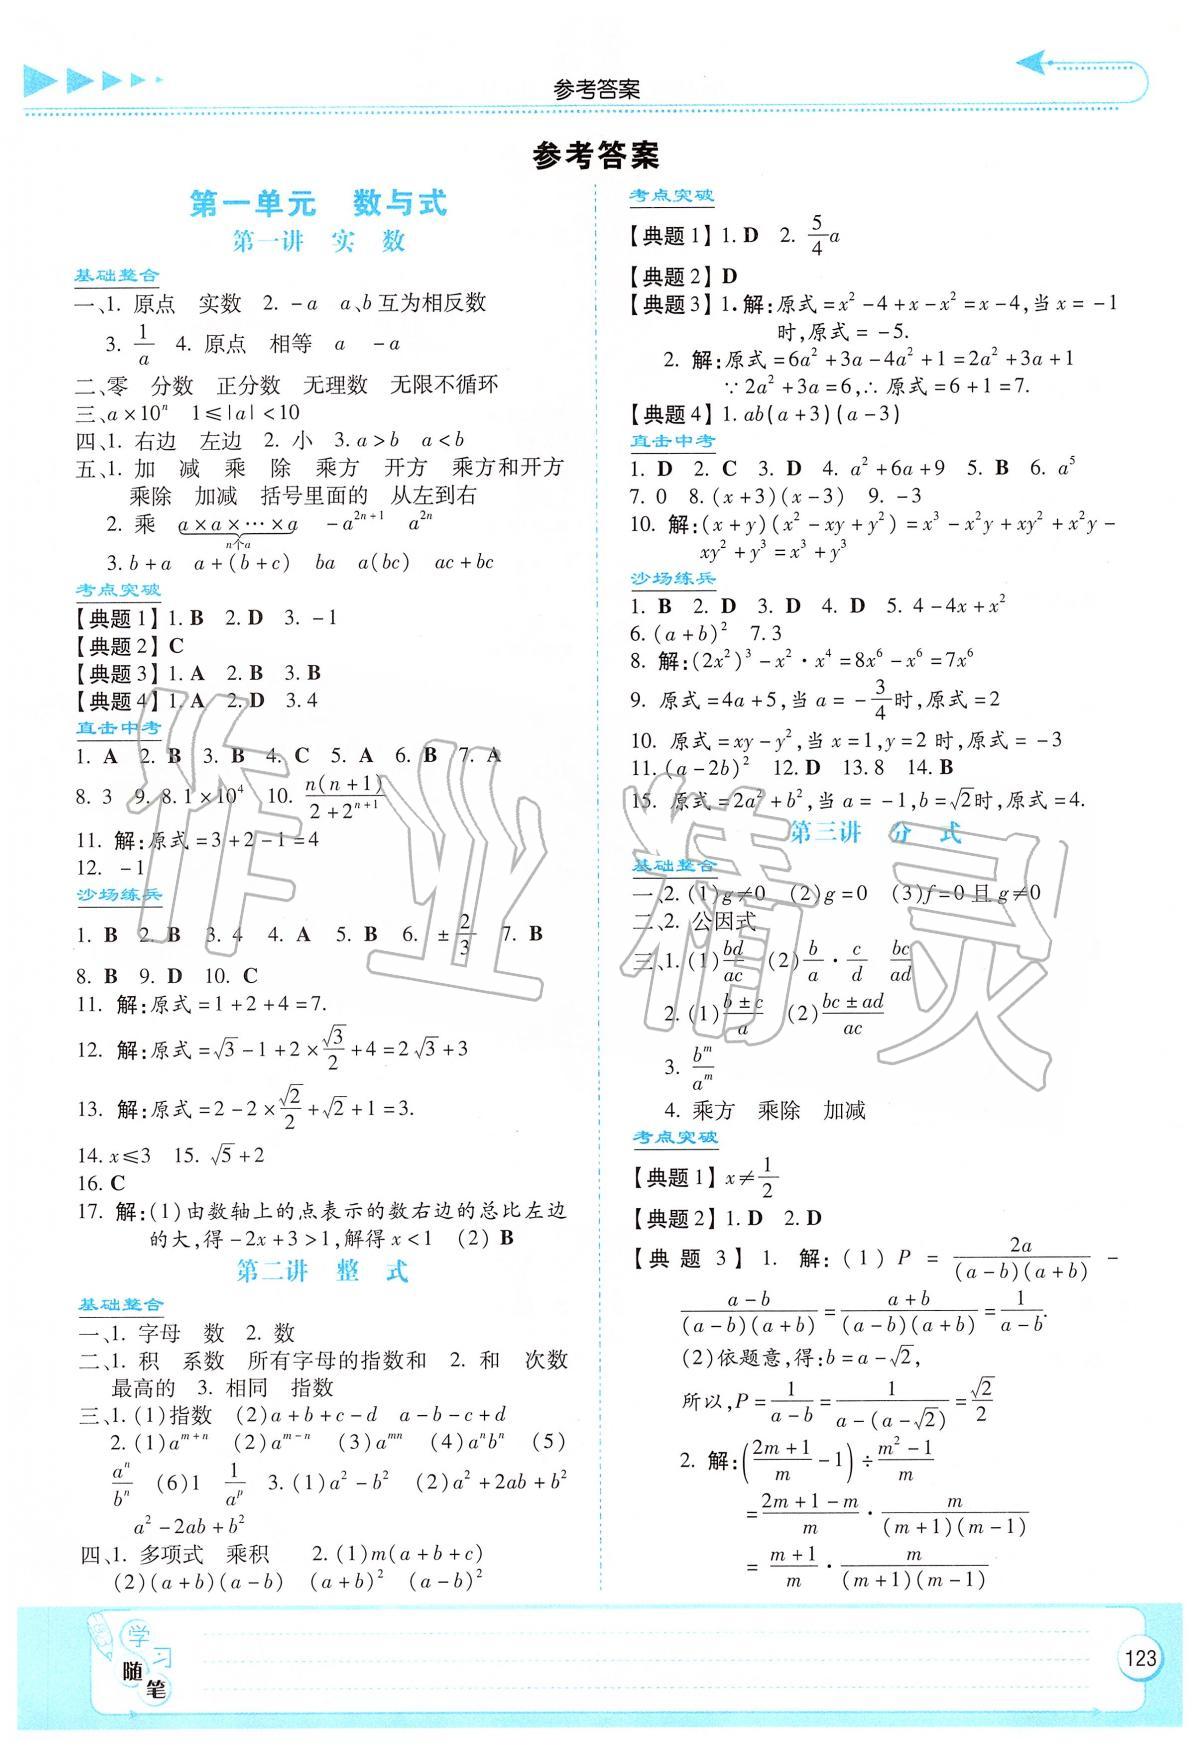 参考答案
参考答案
第一单元 数与式
第一讲 实 数
基础整合
一、1. 原点 实数 2. -a a、b互为相反数
3. 1/a 4. 原点 相等 a -a
二、零 分数 正分数 无理数 无限不循环
三、a×10ⁿ 1≤|a|<10
四、1. 右边 左边 2. 小 3. a>b a<b
五、1. 加 减 乘 除 乘方 开方 乘方和开方
乘除 加减 括号里面的 从左到右
2. 乘 a×a×…×a -a²ⁿ⁺¹ a²ⁿ
n个a
3. b+a a+(b+c) ba a(bc) ac+bc
考点突破
【典题1】1. B 2. D 3. -1
【典题2】C
【典题3】1. A 2. B 3. B
【典题4】1. A 2. D 3. 4
直击中考
1. A 2. B 3. B 4. C 5. A 6. B 7. A
8. 3 9. 8.1×10⁴ 10. n(n+1)/(2+2ⁿ⁺¹)
11. 解:原式=3+2-1=4
12. -1
沙场练兵
1. B 2. B 3. 4 4. A 5. B 6. ±2/3 7. B
8. B 9. D 10. C
11. 解:原式=1+2+4=7.
12. 解:原式=√3-1+2×√3/2+4=2√3+3
13. 解:原式=2-2×√2/2+√2+1=3.
14. x≤3 15. √5+2
16. C
17. 解:(1)由数轴上的点表示的数右边的总比左边
的大,得-2x+3>1,解得x<1 (2) B
第二讲 整 式
基础整合
一、1. 字母 数 2. 数
二、1. 积 系数 所有字母的指数和 2. 和 次数
最高的 3. 相同 指数
三、1. (1)指数 (2)a+b+c-d a-b-c+d
2. (1)aᵐ⁺ⁿ (2)aᵐ⁻ⁿ (3)aᵐⁿ (4)aⁿbⁿ (5)
aⁿ/bⁿ (6)1 1/aᵖ 3. (1)a²-b² (2)a²+2ab+b²
a²-2ab+b²
四、1. 多项式 乘积 2. (1)m(a+b+c)
(2)(a+b)(a-b) (a+b)² (a-b)²
考点突破
【典题1】1. D 2. 5/4a
【典题2】D
【典题3】1. 解:原式=x²-4+x-x²=x-4,当x=-1
时,原式=-5.
2. 解:原式=6a²+3a-4a²+1=2a²+3a+1
∵2a²+3a=6,∴原式=6+1=7.
【典题4】1. ab(a+3)(a-3)
直击中考
1. D 2. C 3. D 4. a²+6a+9 5. B 6. a⁵
7. 0 8. (x+3)(x-3) 9. -3
10. 解:(x+y)(x²-xy+y²)=x³-x²y+xy²+x²y-
xy²+y³=x³+y³
沙场练兵
1. B 2. D 3. D 4. D 5. 4-4x+x²
6. (a+b)² 7. 3
8. 解:(2x²)³-x²·x⁴=8x⁶-x⁶=7x⁶
9. 原式=4a+5,当a=-3/4时,原式=2
10. 原式=xy-y²,当x=1,y=2时,原式=-3
11. (a-2b)² 12. D 13. 8 14. B
15. 原式=2a²+b²,当a=-1,b=√2时,原式=4.
第三讲 分 式
基础整合
一、2. (1)g≠0 (2)g=0 (3)f=0且g≠0
二、2. 公因式
三、1. (1)bd/ac (2)b/a·c/d bc/ad
2. (1)(b±c)/a (2)(bc±ad)/ac
3. bᵐ/aᵐ
4. 乘方 乘除 加减
考点突破
【典题1】x≠1/2
【典题2】1. D 2. D
【典题3】1. 解:(1)P=2a/((a-b)(a+b))-
(a-b)/((a-b)(a+b))=(a+b)/((a-b)(a+b))=1/(a-b).
(2)依题意,得:b=a-√2,
所以,P=1/(a-b)=1/(a-(a-√2))=√2/2
2. 解:((2m+1)/m-1)÷(m²-1)/m
=(2m+1-m)/m·m/((m+1)(m-1))
=(m+1)/m·m/((m+1)(m-1))
作业精灵
学习
随笔
123